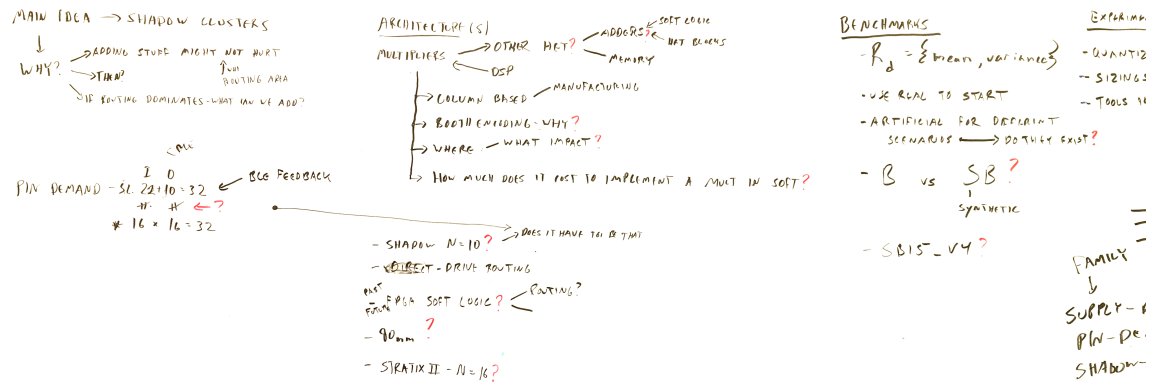 MAIN IDEA → SHADOW CLUSTERS
WHY?
ADDING STUFF MIGHT NOT HURT
ROUTING AREA
THEN?
IF ROUTING DOMINATES - WHAT CAN WE ADD?
I O
PIN DEMAND - SL 22+10=32 ← BLE FEEDBACK
# # ← ?
* 16 * 16 = 32
ARCHITECTURE(S)
MULTIPLIERS
OTHER HET?
ADDERS?
SOFT LOGIC
HET BLOCKS
MEMORY
DSP
COLUMN BASED - MANUFACTURING
BOOTH ENCODING - WHY?
WHERE - WHAT IMPACT?
HOW MUCH DOES IT COST TO IMPLEMENT A MULT IN SOFT?
- SHADOW N=10?
DOES IT HAVE TO BE THAT
- DIRECT - DRIVE ROUTING
PAST
-
FUTURE
FPGA SOFT LOGIC?
ROUTING?
- 90nm ?
- STRATIX II - N=16?
BENCHMARKS
- Rd = {mean, variance}
- USE REAL TO START
- ARTIFICIAL FOR DIFFERENT
SCENARIOS → DO THEY EXIST?
- B vs SB?
SYNTHETIC
- SB15_V4?
EXPERIM
- QUANTIZ
-- SIZINGS
-- TOOLS
FAMILY
↓
SUPPLY -
PIN-DE
SHADOW-